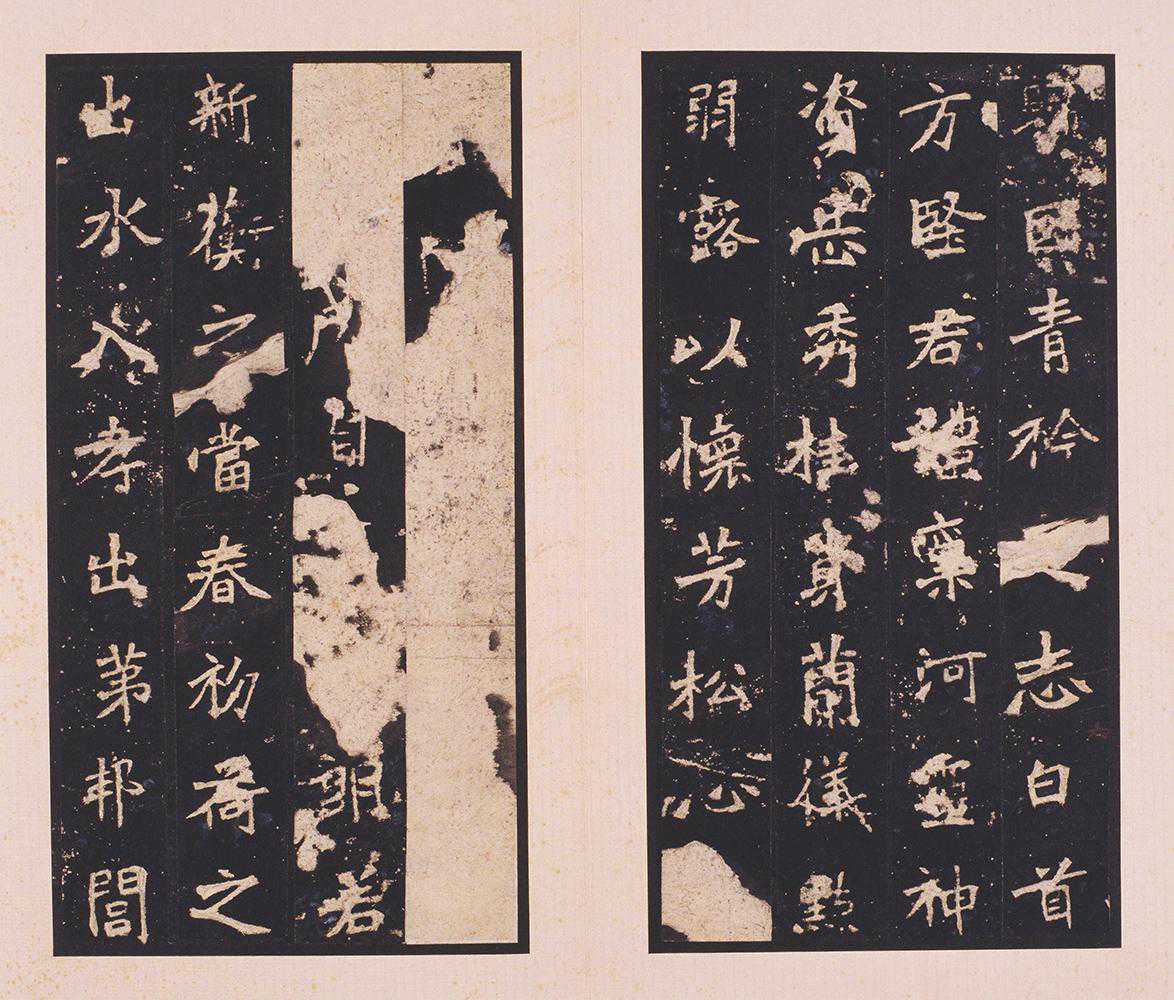 青衿之志白首
方堅君體稟河靈神
資岳秀桂質蘭儀點
弱露以懷芳松心
成自朗若
新蘅之當春初荷之
出水入孝出第邦閭